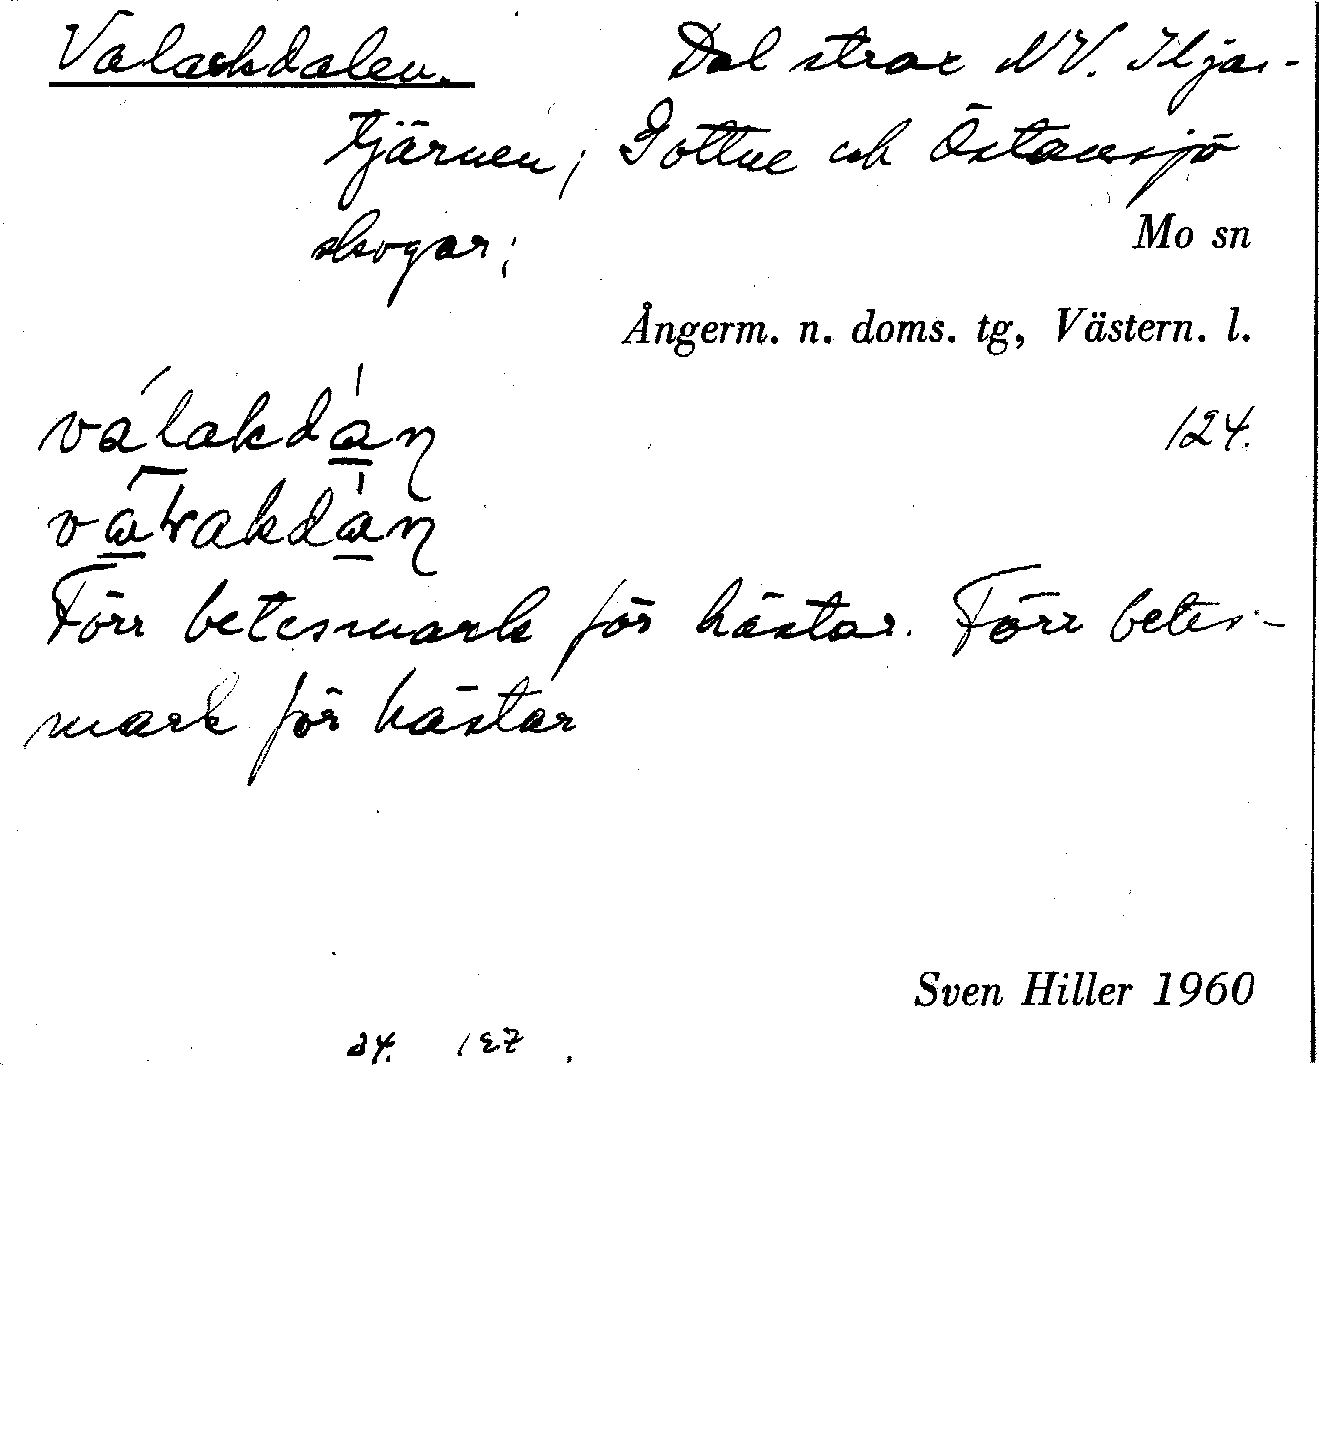 Valackdalen. Dal strax NV. Iljas-
tjärnen; Gottne och Östansjö
skogar;
Mo sn
Ångerm. n. doms. tg, Västern. l.
válakdàn 124.
vàlakdàn
Förr betesmark för hästar. Förr betes-
mark för hästar
Sven Hiller 1960
24. 127